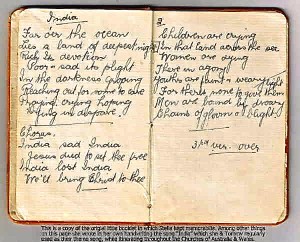 India
Far o'er the ocean
Lies a land of deepest night
Rich its devotion
Poor & sad its plight
In the darkness groping
Reaching out for some to save
Praying, crying hoping
Dying in despair!
Chorus.
India sad India
Jesus died to set thee free
India lost India
We'll bring Christ to thee
2
Children are crying
In that land across the sea
Women are dying
There in agony
Youths are faint & weary
For there's none to give them light
Men are bound by dreary
Chains of gloom & blight!
3rd ver. over
This is a copy of the original little booklet in which Stella kept memorabilia. Among other things
on this page she wrote in her own handwriting the song "India" which she & Tommy regularly
used as their theme song, while itinerating throughout the Churches of Australia & Wales.